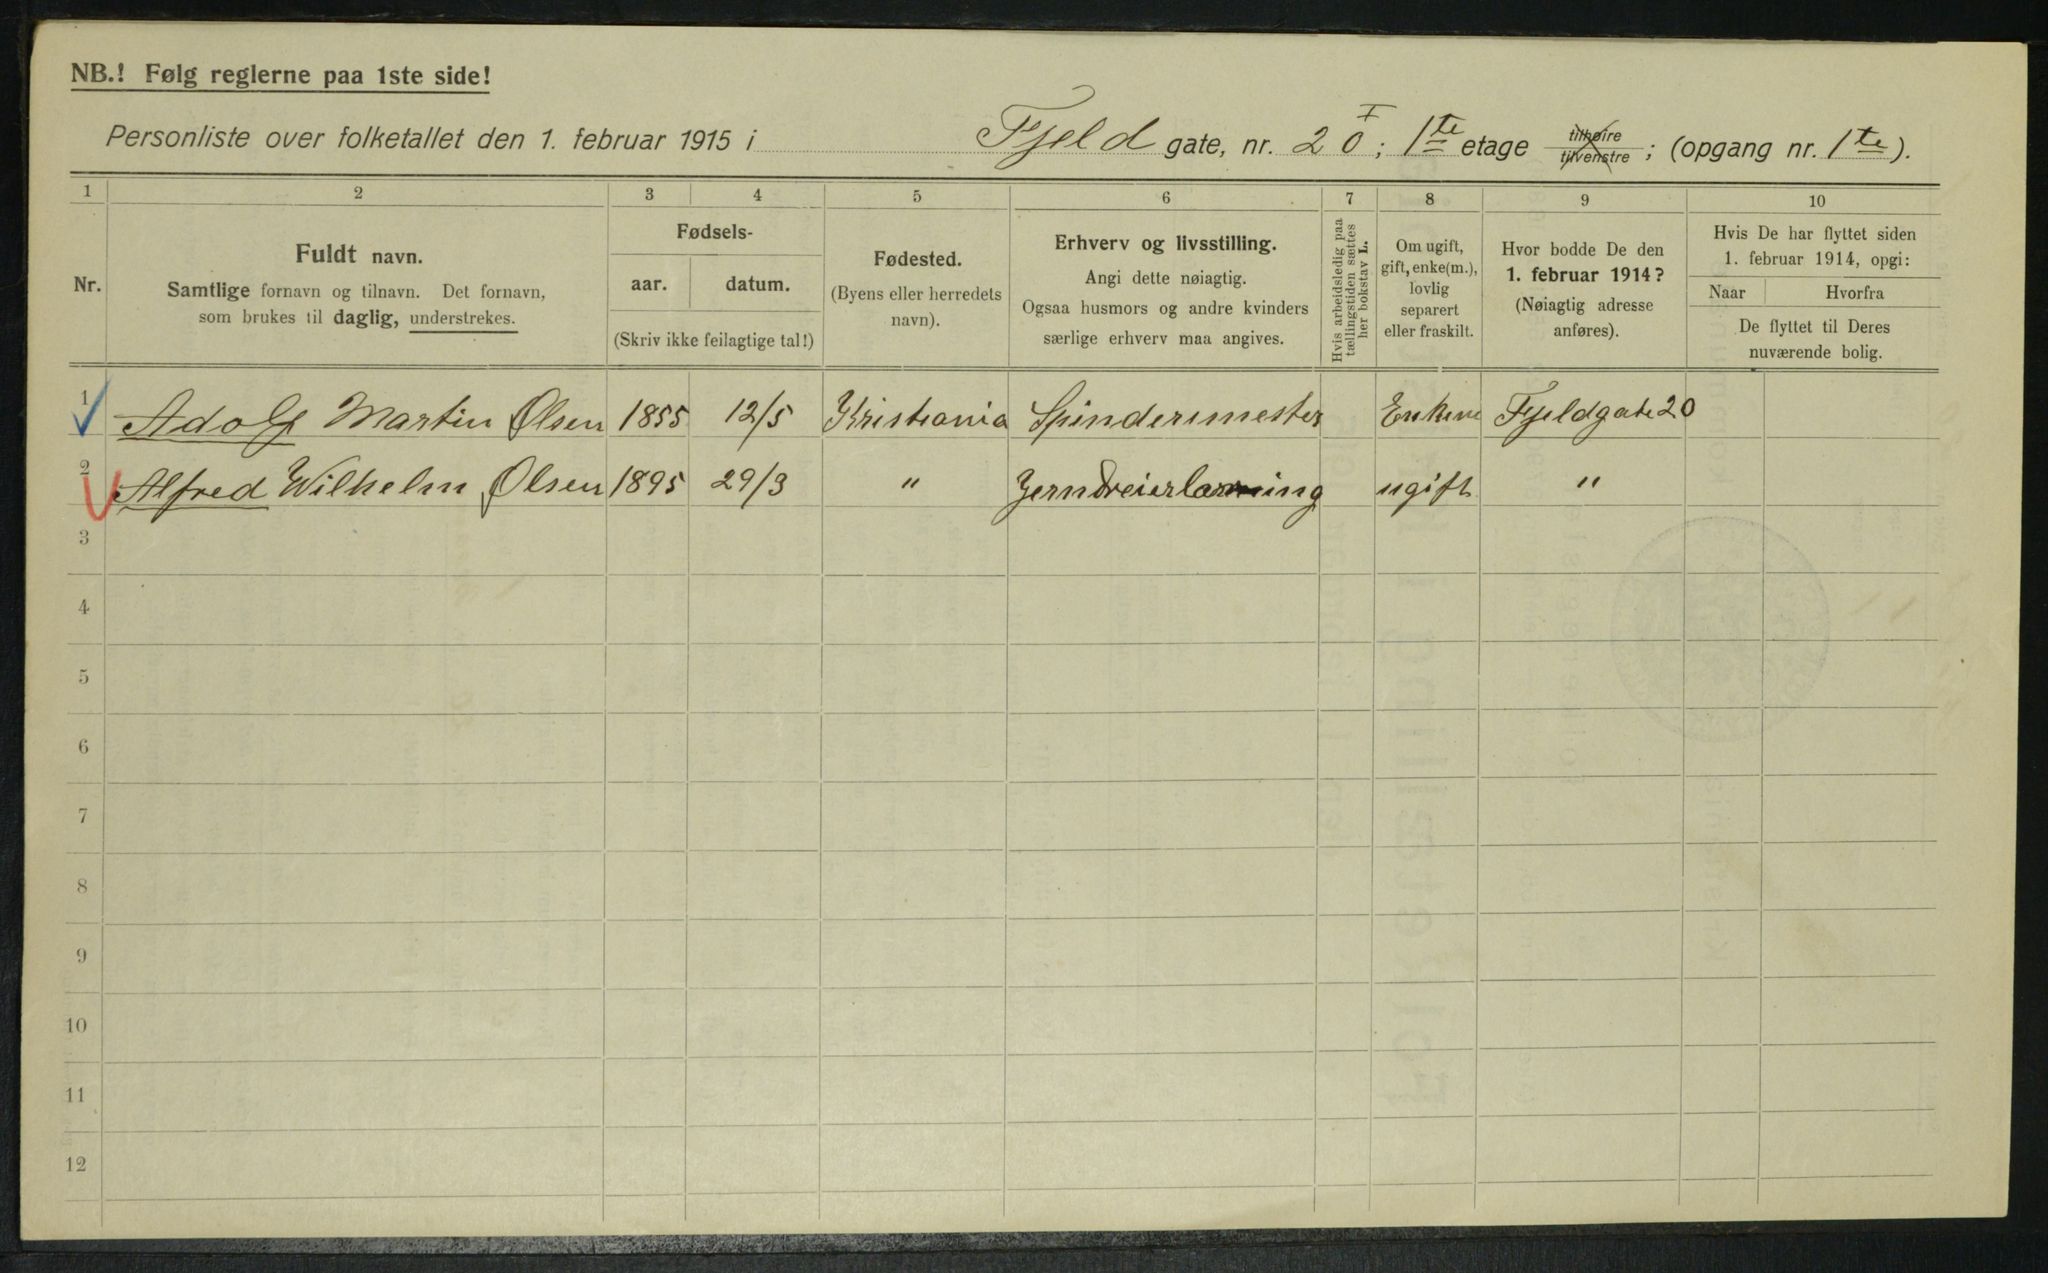 NB.! Følg reglerne paa 1ste side!
Personliste over folketallet den 1. februar 1915 i Fjeld gate, nr. 20 I; 1te etage tilhøire tilvenstre; (opgang nr. 1te).
1 2 3 4 5 6 7 8 9 10
Nr.
Fuldt navn.
Samtlige fornavn og tilnavn. Det fornavn,
som brukes til daglig, understrekes.
Fødsels-
aar. datum.
(Skriv ikke feilagtige tal!)
Fødested.
(Byens eller herredets
navn).
Erhverv og livsstilling.
Angi dette nøiagtig.
Ogsaa husmors og andre kvinders
særlige erhverv maa angives.
Hvis arbeidsledig paa
tællingstiden sættes
her bokstav L.
Om ugift,
gift, enke(m.),
lovlig
separert
eller fraskilt.
Hvor bodde De den
1. februar 1914?
(Nøiagtig adresse
anføres).
Hvis De har flyttet siden
1. februar 1914, opgi:
Naar Hvorfra
De flyttet til Deres
nuværende bolig.
1 Adolf Martin Olsen 1855 12/5 Kristiania Spindermester Fjeldgate 20
2 Alfred Wilhelm Olsen 1895 29/3 " Jerndreierlærning ugift "
3
4
5
6
7
8
9
10
11
12